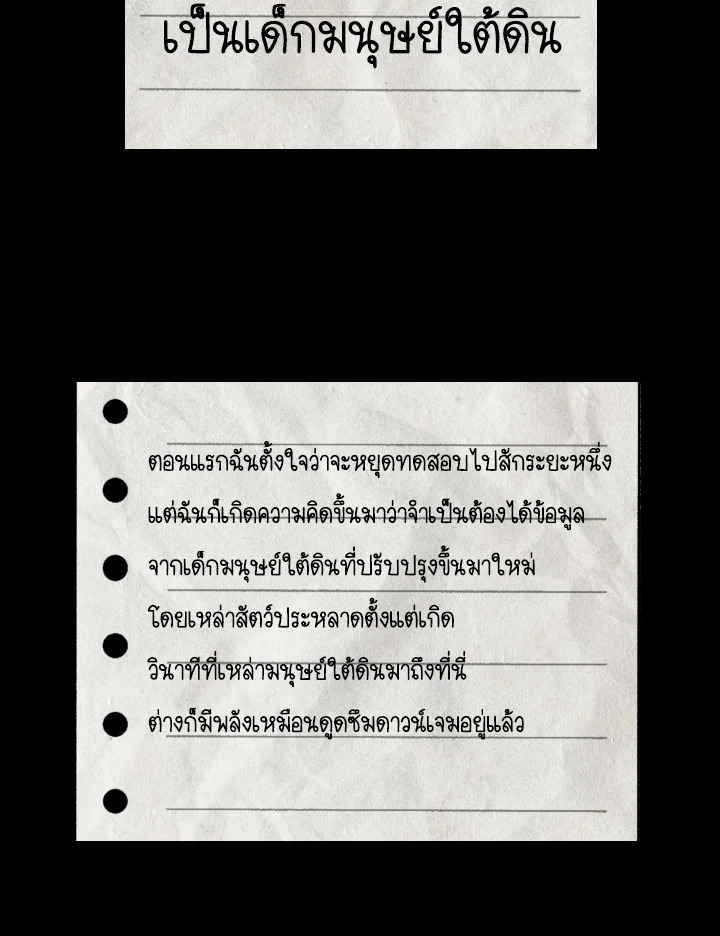 เป็นเด็กมนุษย์ใต้ดิน
ตอนแรกฉันตั้งใจว่าจะหยุดทดสอบไปสักระยะหนึ่ง
แต่ฉันก็เกิดความคิดขึ้นมาว่าจำเป็นต้องได้ข้อมูล
จากเด็กมนุษย์ใต้ดินที่ปรับปรุงขึ้นมาใหม่
โดยเหล่าสัตว์ประหลาดตั้งแต่เกิด
วินาทีที่เหล่ามนุษย์ใต้ดินมาถึงที่นี่
ต่างก็มีพลังเหมือนดูดซึมดาวน์เจมอยู่แล้ว